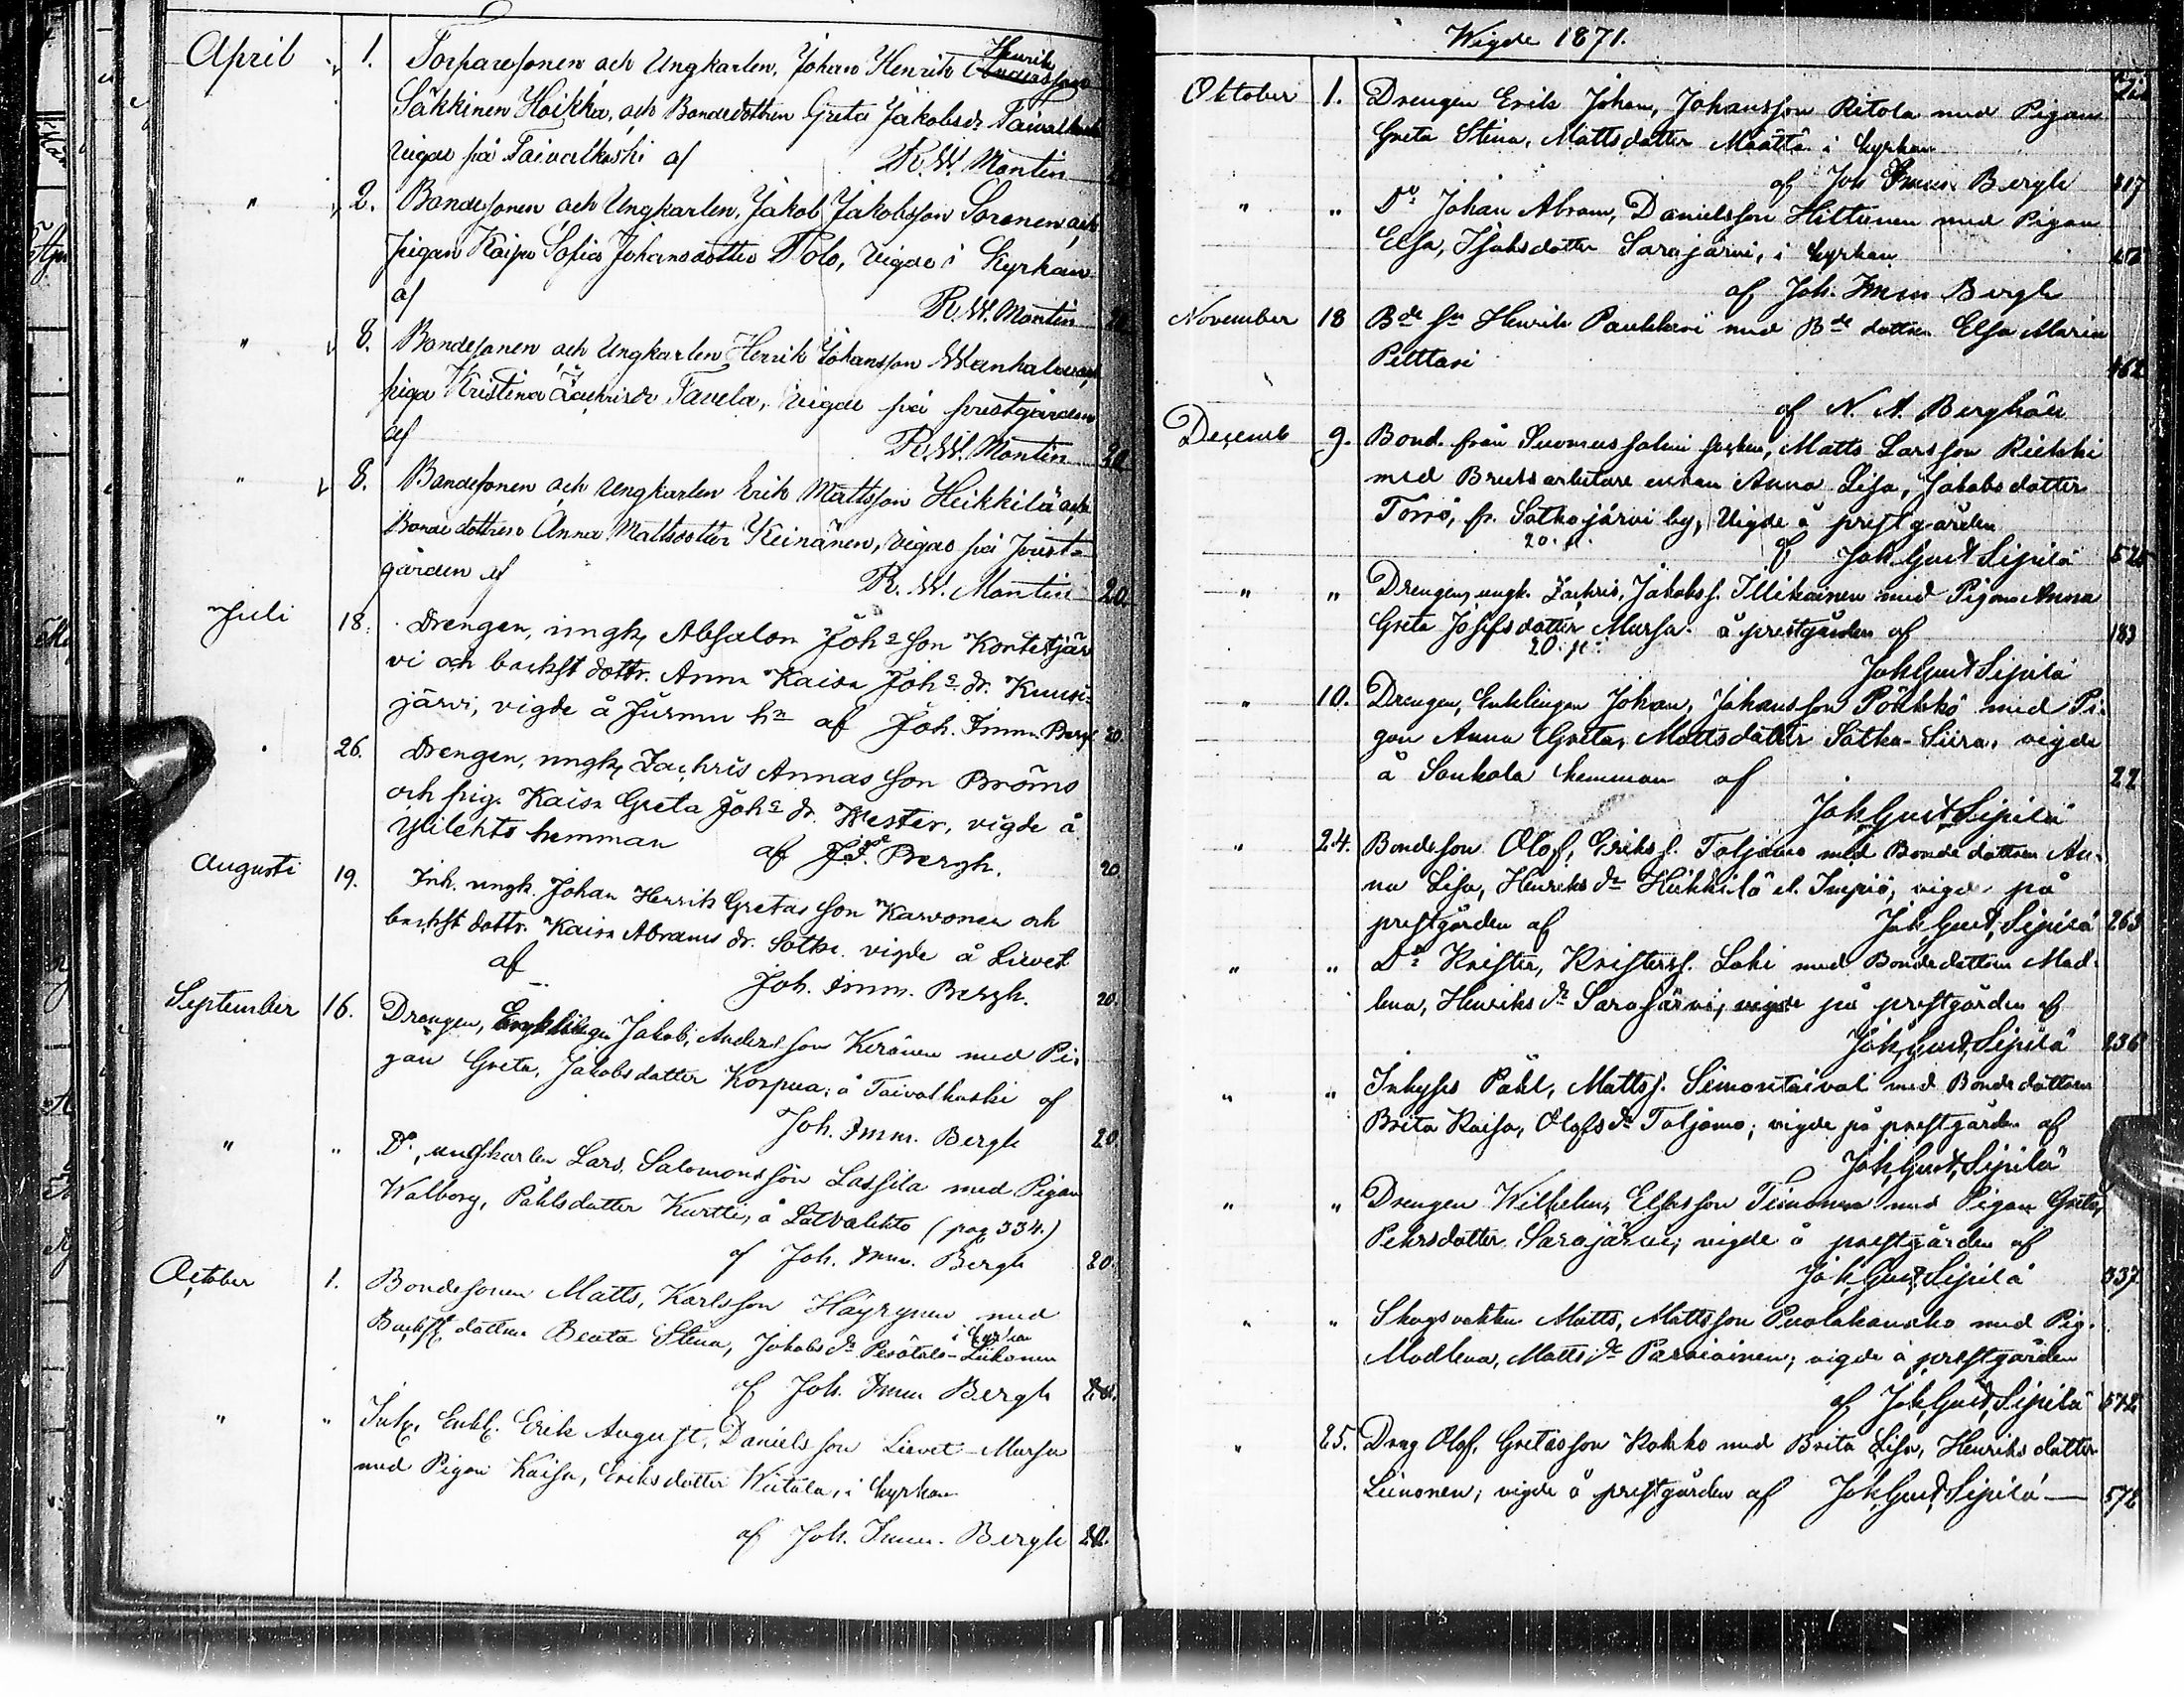 April 1. Torparesonen och Ungkarlen, Johan Henrik Henrik Andersson
Säkkinen Hoikka, och Bondedottren Greta Jakobsdr Taivalkoski
vigde på Taivalkoski af R. W. Montin
" 2. Bondesonen och Ungkarlen, Jakob Jakobsson Soronen och
pigan Kaisa Sofia Johansdotter Polo, vigde i Kyrkan
af R. W. Montin
" 8. Bondesonen och Ungkarlen Henrik Johansson Wanhala och
piga Kristina Zachrisdr Tauela, vigde på prestgården
af R. W. Montin 20
" 8. Bondesonen och Ungkarlen Erik Mattsson Heikkilä och
Bonde dottren Anna Mattsdotter Keinänen, vigde på Prest-
gården af R. W. Montin 20.
Juli 18. Drengen, ungk, Absalon Joh:s son Kontetjär
vi och backst dottr. Anna Kaisa Joh:s dr. Kuusi-
järvi, vigde å Jurmu hn af Joh. Imm. Bergh 20.
26. Drengen, ungk, Zachris Annas son Bröms
och pig. Kaisa Greta Joh:s dr. Wester, vigde å
Ylilehto hemman af J. I. Bergh. 20
Augusti 19. Inh. ungk. Johan Henrik Gretas son Karvonen och
backst dottr. Kaisa Abrams dr. Sotka. vigde å Lievet
af Joh. Imm. Bergh. 20.
September 16. Drengen, Enklingen Jakob, Andersson Keränen med Pi-
gan Greta, Jakobsdotter Korpua; å Taivalkoski af
Joh. Imm. Bergh 20
" " Do, ungkarlen Lars, Salomonsson Lassila med Pigan
Walborg, Påhlsdotter Kurtti, å Latvalehto (pag 334.)
af Joh. Imm. Bergh 20.
October 1. Bondesonen Matts, Karlsson Häyrynen med
Backst dottren Beata Stina, Jakobs dr Pesätalo-Liikanen i Kyrkan
af Joh. Imm Bergh 20.
" " Inh, Enkl. Erik August, Daniels son Lievet-Mursu
med Pigan Kaisa, Eriksdotter Wiitala, i kyrkan
af Joh. Imm. Bergh 20.
Wigde 1871.
Oktober 1. Drengen Erik Johan, Johansson Ritola med Pigan
Greta Stina, Mattsdotter Määttä i kyrkan
af Joh Imm. Bergh 417
" " Do Johan Abram, Danielsson Hiltunen med Pigan
Elsa, Isaksdotter Sarajärvi, i kyrkan
af Joh. Imm Bergh
November 18 Bde sn Henrik Paukkeri med Bde dottren Elsa Maria
Pelttari 162
af N. A. Berghäll
Decemb 9. Bond. från Suomussalmi socken, Matts Larsson Riekki
med Bruksarbetare enkan Anna Lisa, Jakobsdotter
Törrö, fr. Sotkajärvi by, Vigde å prestgården
20. p. af Joh Gust Sipilä
" " Drengen, ungk. Zachris, Jakobs s. Illikainen med Pigan Anna
Greta Josefsdotter Mursu. å prestgården af 183
20. p. Joh Gust Sipilä
" 10. Drengen, Enklingen Johan, Johansson Pöykkö med Pi-
gan Anna Greta, Mattsdotter Sotka-Siira, vigde
å Soukola hemman af 22
Joh Gust Sipilä
" 24. Bondeson Olof, Eriks s. Taljamo med Bonde dottren An-
na Lisa, Henriks dr Heikkilä el. Impiö, vigde på
prestgården af Joh Gust, Sipilä 263
" " Do Krister, Kristers s. Lohi med Bondedottren Mad-
lena, Henriks dr Sarajärvi, vigde på prestgården af
Joh, Gust, Sipilä 236
" " Inhyses Påhl, Matts s. Simontaival med Bonde dottren
Brita Kaisa, Olofs dr Taljamo; vigde på prestgården af
Joh, Gust, Sipilä
" " Drengen Wilhelm, Eliasson Timonen med Pigan Greta,
Pehrsdotter Sarajärvi; vigde å prestgården af
Joh, Gust, Sipilä 337
" " Skogsvakten Matts, Mattsson Puolakanaho med Pig.
Madlena, Matts dr Parviainen; vigde å prestgården
af Joh, Gust, Sipilä 572
" 25. Dreg Olof, Gretasson Kokko med Brita Lisa, Henriks dotter
Leinonen; vigde å prestgården af Joh, Gust, Sipilä — 572